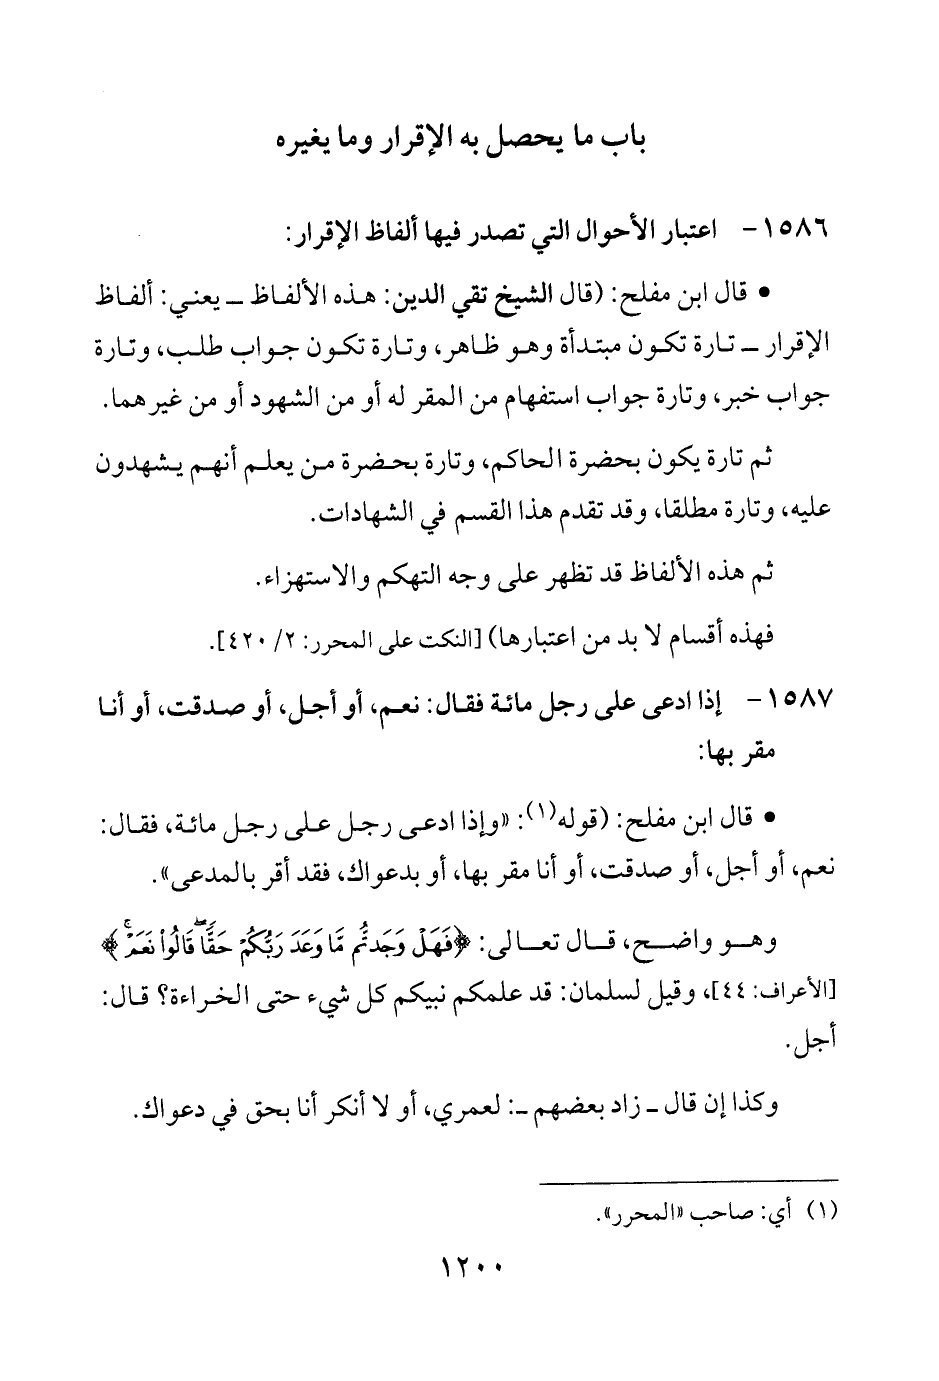 باب ما يحصل به الإقرار وما يغيره
١٥٨٦ - اعتبار الأحوال التي تصدر فيها ألفاظ الإقرار:
• قال ابن مفلح: (قال الشيخ تقي الدين: هذه الألفاظ ـ يعني: ألفاظ
الإقرار ـ تارة تكون مبتدأة وهو ظاهر، وتارة تكون جواب طلب، وتارة
جواب خبر، وتارة جواب استفهام من المقر له أو من الشهود أو من غيرهما.
ثم تارة يكون بحضرة الحاكم، وتارة بحضرة من يعلم أنهم يشهدون
عليه، وتارة مطلقا، وقد تقدم هذا القسم في الشهادات.
ثم هذه الألفاظ قد تظهر على وجه التهكم والاستهزاء.
فهذه أقسام لا بد من اعتبارها) [النكت على المحرر: ٢/ ٤٢٠].
١٥٨٧ - إذا ادعى على رجل مائة فقال: نعم، أو أجل، أو صدقت، أو أنا
مقر بها:
• قال ابن مفلح: (قوله(١): «وإذا ادعى رجل على رجل مائة، فقال:
نعم، أو أجل، أو صدقت، أو أنا مقر بها، أو بدعواك، فقد أقر بالمدعى».
وهو واضح، قال تعالى: ﴿فَهَلْ وَجَدتُّم مَّا وَعَدَ رَبُّكُمْ حَقًّا ۖ قَالُوا۟ نَعَمْ ۚ﴾
[الأعراف: ٤٤]، وقيل لسلمان: قد علمكم نبيكم كل شيء حتى الخراءة؟ قال:
أجل.
وكذا إن قال ـ زاد بعضهم ـ: لعمري، أو لا أنكر أنا بحق في دعواك.
(١) أي: صاحب «المحرر».
١٢٠٠